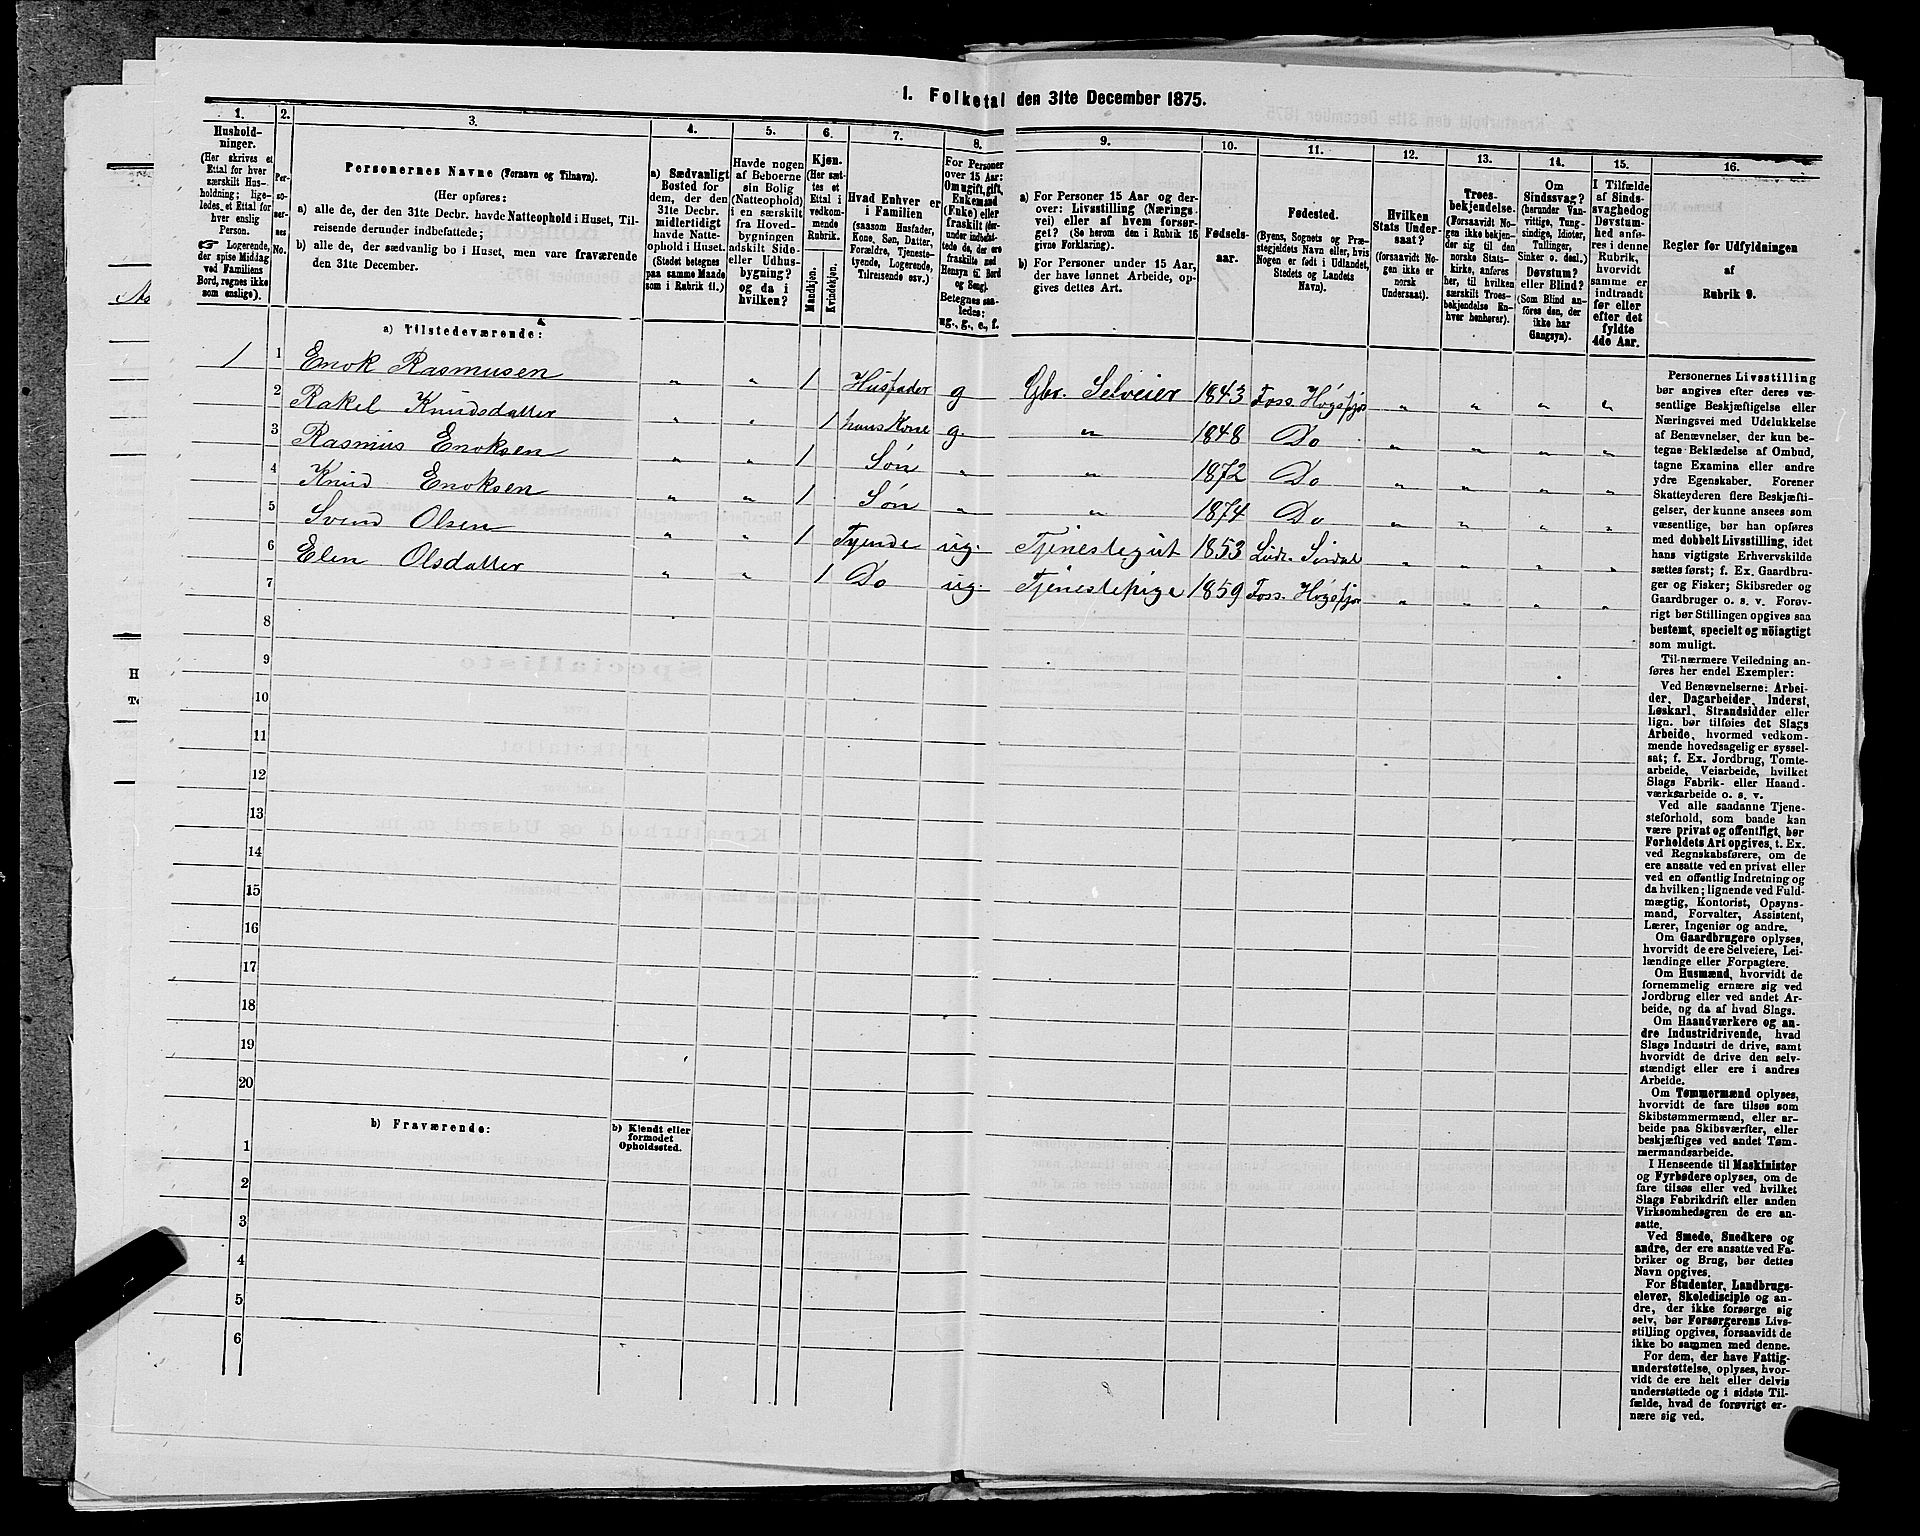 1. Folketal den 31te December 1875.
1.
2.
3.
4.
5.
6.
7.
8.
9.
10.
11.
12.
13.
14.
15.
16.
Hushold-
ninger.
(Her skrives et
Ettal for hver
særskilt Hus-
holdning; lige-
ledes et Ettal for
hver enslig
Person.
☞ Logerende,
der spise Middag
ved Familiens
Bord, regnes ikke
som enslige).
Per-
so-
ner-
nes
No.
Personernes Navne (Fornavn og Tilnavn).
(Her opføres:
a) alle de, der den 31te Decbr. havde Natteophold i Huset, Til-
reisende derunder indbefattede;
b) alle de, der sædvanlig bo i Huset, men vare fraværende
den 31te December.
a) Sædvanligt
Bosted for
dem, der den
31te Decbr.
midlertidigt
havde Natte-
ophold i Huset.
(Stedet betegnes
paa samme Maade
som i Rubrik 11.)
Havde nogen
af Beboerne
sin Bolig
(Natteophold)
i en særskilt
fra Hoved-
bygningen
adskilt Side-
eller Udhus-
bygning?
og da i
hvilken?
Kjøn.
(Her sæt-
tes et
Ettal i
vedkom-
mende
Rubrik.
Mandkjøn.
Kvindekjøn.
Hvad Enhver er
i Familien
(saasom Husfader,
Kone, Søn, Datter,
Forældre, Tjeneste-
tyende, Logerende,
Tilreisende osv.)
For Personer
over 15 Aar:
Om ugift, gift,
Enkemand
(Enke) eller
fraskilt (der-
under indbefat-
tede de, der ere
fraskilte med
Hensyn til Bord
og Seng).
Betegnes saa-
ledes:
ug., g., e., f.
a) For Personer 15 Aar og der-
over: Livsstilling (Nærings-
vei) eller af hvem forsør-
get? (Se herom den i Rubrik 16
givne Forklaring).
b) For Personer under 15 Aar,
der have lønnet Arbeide, op-
gives dettes Art.
Fødsels-
aar.
Fødested.
(Byens, Sognets og Præ-
stegjeldets Navn eller, hvis
Nogen er født i Udlandet,
Stedets og Landets
Navn).
Hvilken
Stats Under-
saat?
(forsaavidt No-
gen ikke er
norsk
Undersaat).
Troes-
bekjendelse.
(Forsaavidt No-
gen ikke bekjen-
der sig til den
norske Stats-
kirke, anføres
her, til hvilken
særskilt Troes-
bekjendelse En-
hver henhører).
Om
Sindssvag?
(herunder Van-
vittige, Tung-
sindige, Idioter,
Tullinger,
Sinker o. desl.)
Døvstum?
eller Blind?
(Som Blind an-
føres den, der
ikke har
Gangsyn).
I Tilfælde
af Sinds-
svaghed og
Døvstum-
hed anfø-
res i denne
Rubrik,
hvorvidt
samme er
indtraadt
før eller
efter det
fyldte
4de Aar.
Regler for Udfyldningen
af
Rubrik 9.
a) Tilstedeværende:
1 1 Enok Rasmusen „ „ 1 Husfader g Gbr. Selveier 1843 Foss. Høgsfjor „ „ „ „
2 Rakel Knudsdatter „ „ 1 hans Kone g. „ 1848 Do „ „ „ „
3 Rasmus Enoksen „ „ 1 Søn „ „ 1872 Do „ „ „ „
4 Knud Enoksen „ „ 1 Søn „ „ 1874 Do „ „ „ „
5 Svend Olsen „ „ 1 Tyende ug. Tjenestegut 1853 Sirdal „ „ „ „
6 Elen Olsdatter „ „ 1 Do ug. Tjenestepige 1859 Foss. Høgsfjor „ „ „ „
7
8
9
10
11
12
13
14
15
16
17
18
19
20
b) Fraværende:
b) Kjendt eller
formodet
Opholdssted.
1
2
3
4
5
6
Personernes Livsstilling
bør angives efter deres væ-
sentlige Beskjæftigelse eller
Næringsvei med Udelukkelse
af Benævnelser, der kun be-
tegne Beklædelse af Ombud,
tagne Examina eller andre
ydre Egenskaber. Forener
Skatteyderen flere Beskjæfti-
gelser, der kunne ansees som
væsentlige, bør han opføres
med dobbelt Livsstilling, idet
hans vigtigste Erhvervskilde
sættes først; f. Ex. Gaardbru-
ger og Fisker; Skibsreder og
Gaardbruger o. s. v. Forøv-
rigt bør Stillingen opgives saa
bestemt, specielt og nöiagtigt
som muligt.
Til nærmere Veiledning an-
føres her endel Exempler:
Ved Benævnelserne: Arbei-
der, Dagarbeider, Inderst,
Løskarl, Strandsidder eller
lign. bør tilføies det Slags
Arbeide, hvormed vedkom-
mende hovedsagelig er syssel-
sat; f. Ex. Jordbrug, Tomte-
arbeide, Veiarbeide, hvilket
Slags Fabrik- eller Haand-
værksarbeide o. s. v.
Ved alle saadanne Tjene-
steforhold, som baade kan
være privat og offentligt, bør
Forholdets Art opgives, t. Ex.
ved Regnskabsførere, om de
ere ansatte ved en privat eller
ved en offentlig Indretning og
da hvilken; lignende ved Fuld-
mægtig, Kontorist, Opsyns-
mand, Forvalter, Assistent,
Lærer, Ingeniør og andre.
Om Gaardbrugere oplyses,
hvorvidt de ere Selveiere, Lei-
lændinge eller Forpagtere.
Om Husmænd, hvorvidt de
fornemmelig ernære sig ved
Jordbrug eller ved andet Ar-
beide, og da af hvad Slags.
Om Haandværkere og an-
dre Industridrivende, hvad
Slags Industri de drive, samt
hvorvidt de drive den selv-
stændigt eller ere i andres
Arbeide.
Om Tømmermænd oplyses,
hvorvidt de fare tilsøs som
Skibstømmermænd, eller ar-
beide paa Skibsværfter, eller
beskjæftiges ved andet Tøm-
mermandsarbeide.
I Henseende til Maskinister
og Fyrbødere oplyses, om de
fare tilsøs eller ved hvilket
Slags Fabrikdrift eller anden
Virksomhedsgren de ere an-
satte.
Ved Smede, Snedkere og
andre, der ere ansatte ved Fa-
briker og Brug, bør dettes
Navn opgives.
For Studenter, Landbrugs-
elever, Skoledisciple og an-
dre, der ikke forsørge sig
selv, bør Forsørgerens Livs-
stilling opgives, forsaavidt de
ikke bo sammen med denne.
For dem, der have Fattig-
understøttelse, oplyses, hvor-
vidt de ere helt eller delvis
understøttede og i sidste Til-
fælde, hvad de forøvrigt er-
nære sig ved.